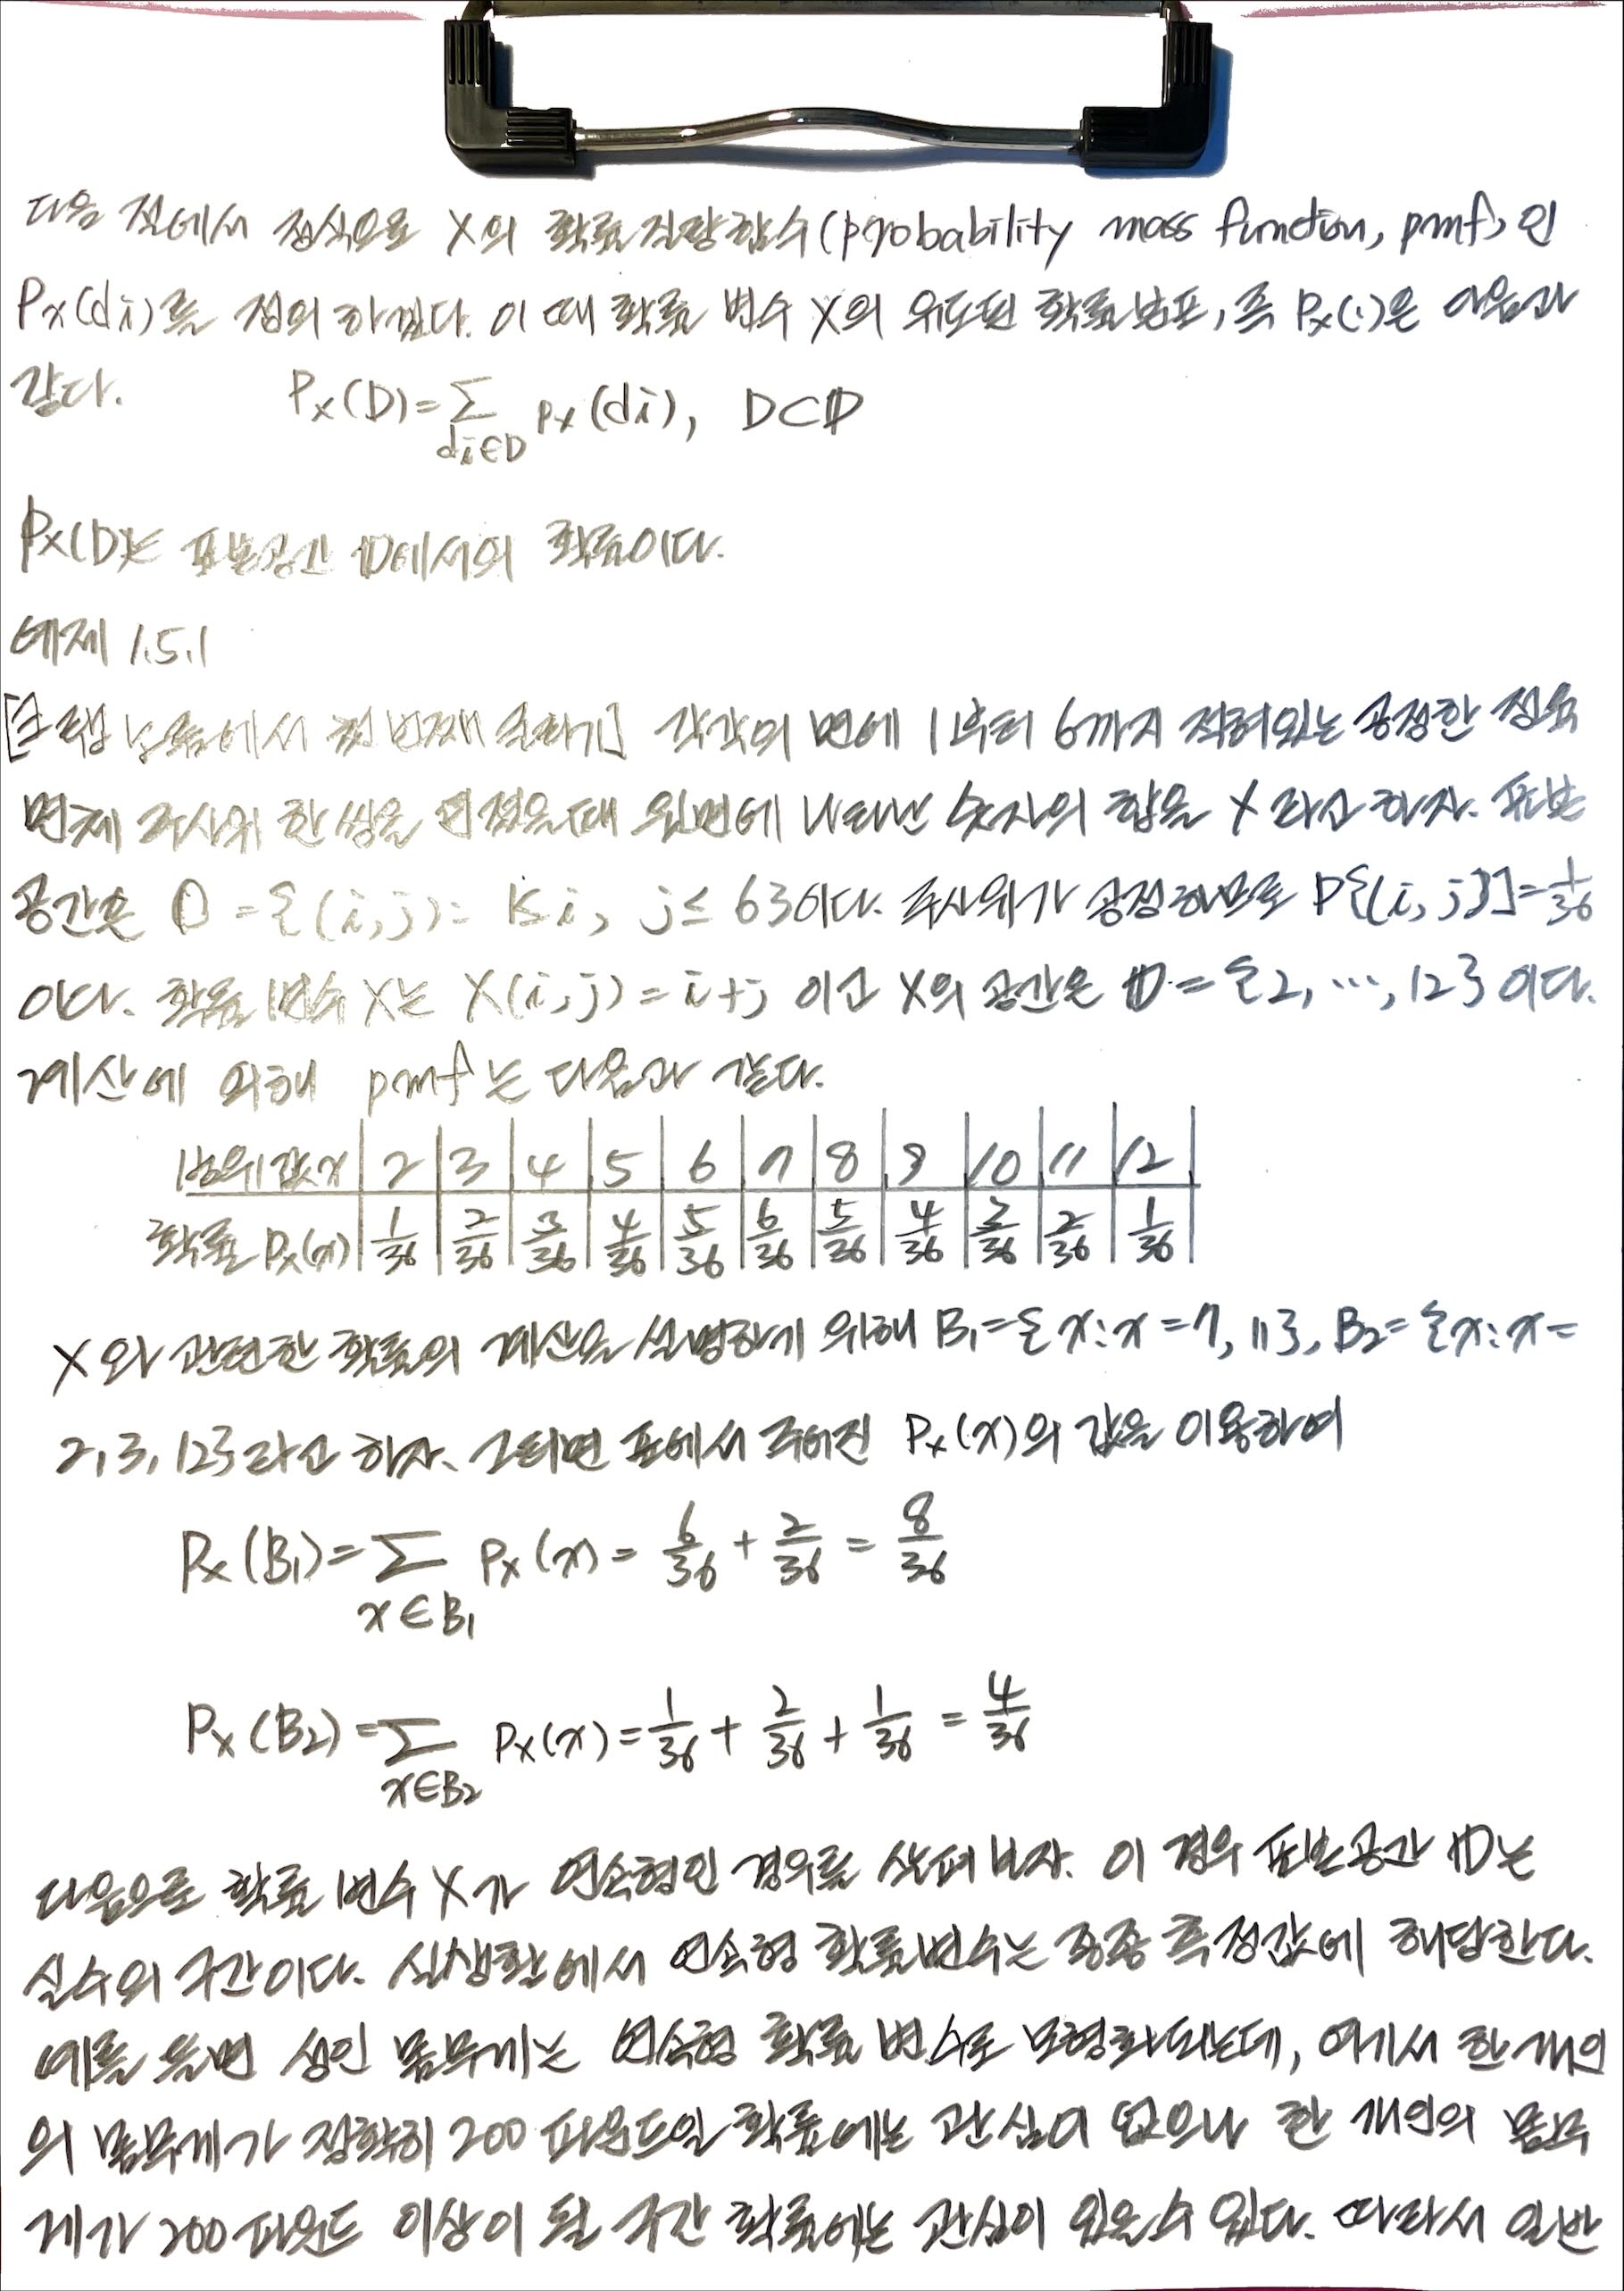 다음 절에서 정식으로 X의 확률질량함수(probability mass function, pmf)인
Px(di)를 정의 하겠다. 이 때 확률 변수 X의 유도된 확률분포, 즉 Px(·)은 다음과
같다. Px(D)=∑ di∈D px(di), D⊂𝔻
Px(D)는 표본공간 𝔻에서의 확률이다.
예제 1.5.1
[크랩 노름에서 첫 번째 굴리기] 각각의 면에 1부터 6까지 적혀있는 공정한 정육
면체 주사위 한 쌍을 던졌을때 윗면에 나타난 숫자의 합을 X라고 하자. 표본
공간은 = {(i,j): 1≤i, j≤6}이다. 주사위가 공정하므로 P[{(i,j)}]=1/36
이다. 확률 변수 X는 X(i,j)=i+j 이고 X의 공간은 𝔻={2, ⋯, 12} 이다.
계산에 의해 pmf는 다음과 같다.
범위값x | 2 | 3 | 4 | 5 | 6 | 7 | 8 | 9 | 10 | 11 | 12
확률 Px(x) | 1/36 | 2/36 | 3/36 | 4/36 | 5/36 | 6/36 | 5/36 | 4/36 | 3/36 | 2/36 | 1/36
X와 관련한 확률의 계산을 설명하기 위해 B₁={x:x=7, 11}, B₂={x:x=
2,3,12}라고 하자. 그러면 표에서 주어진 Px(x)의 값을 이용하여
Px(B₁)=∑ x∈B₁ Px(x)= 6/36 + 2/36 = 8/36
Px(B₂)=∑ x∈B₂ Px(x)= 1/36 + 2/36 + 1/36 = 4/36
다음으로 확률 변수 X가 연속형인 경우를 살펴 보자. 이 경우 표본공간 𝔻는
실수의 구간이다. 실생활에서 연속형 확률변수는 종종 측정값에 해당한다.
예를 들면 성인 몸무게는 연속형 확률 변수로 모형화되는데, 여기서 한 개인
의 몸무게가 정확히 200 파운드일 확률에는 관심이 없으나 한 개인의 몸무
게가 200파운드 이상이 될 구간 확률에는 관심이 있을 수 있다. 따라서 일반